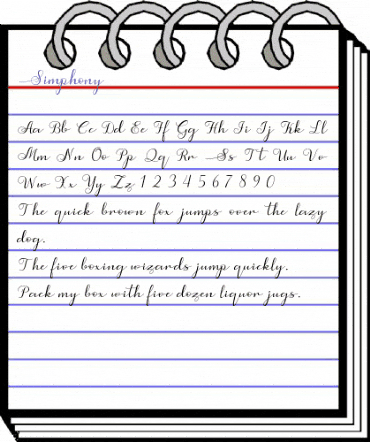 Simphony
Aa Bb Cc Dd Ee Ff Gg Hh Ii Jj Kk Ll
Mm Nn Oo Pp Qq Rr Ss Tt Uu Vv
Ww Xx Yy Zz 1 2 3 4 5 6 7 8 9 0
The quick brown fox jumps over the lazy
dog.
The five boxing wizards jump quickly.
Pack my box with five dozen liquor jugs.